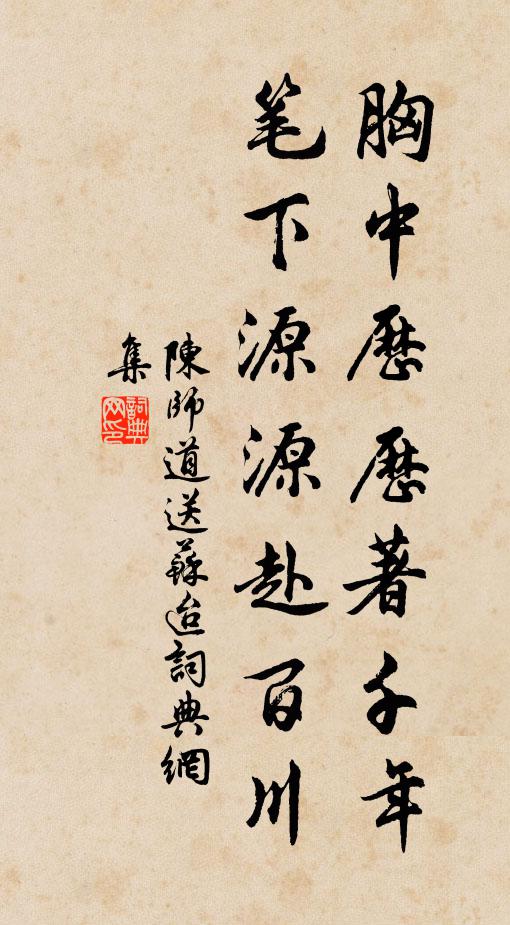 胸中歷歷著千年
笔下源源赴百川
陳師道送蘇迨詞典網
集
詞典
网印